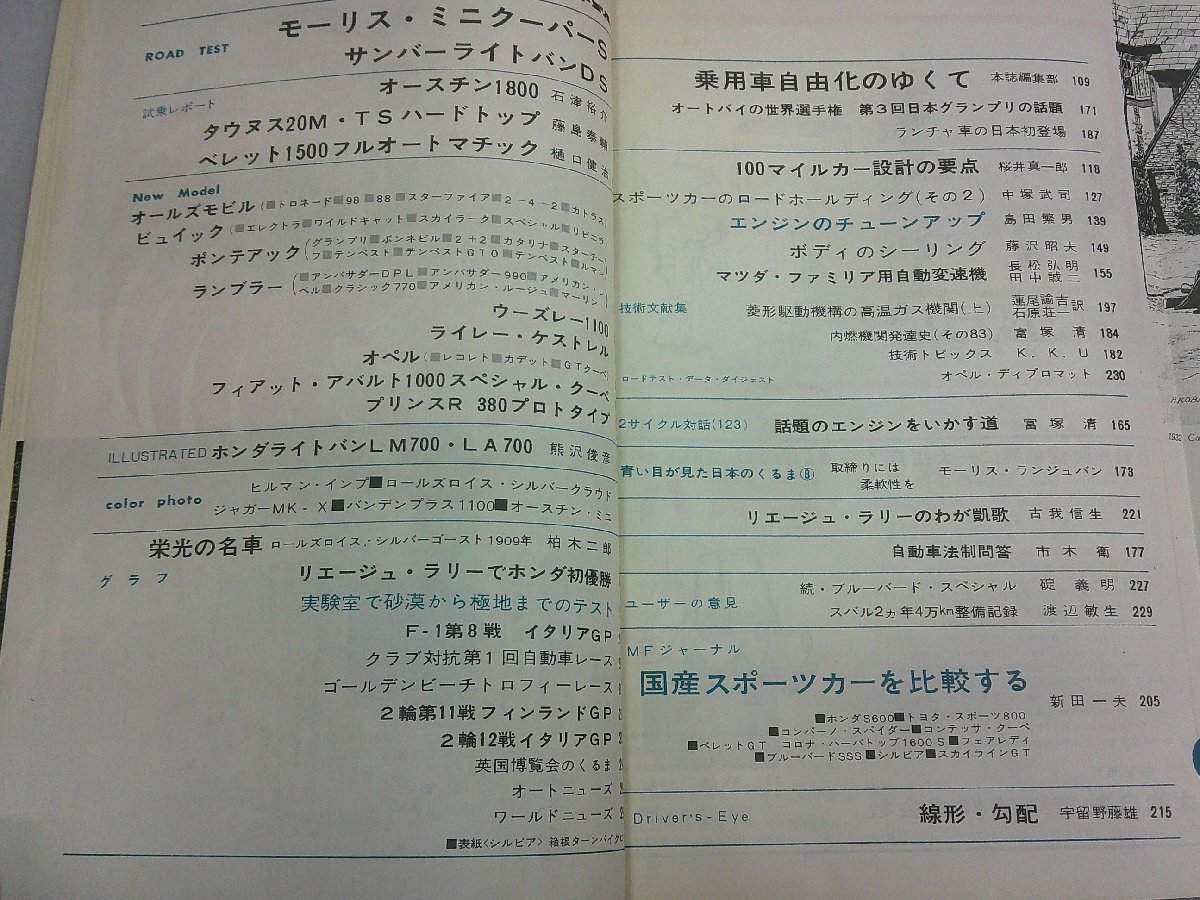 ROAD TEST
モーリス・ミニクーパーS
サンバーライトバンDS
試乗レポート
オースチン1800 石津裕介
タウヌス20M・TSハードトップ 藤島泰輔
ベレット1500フルオートマチック 樋口健治
New Model
オールズモビル(■トロネード■98■88■スターファイア■2-4-2■カトラス
ビュイック(■エレクトラ■ワイルドキャット■スカイラーク■スペシャル■リビエラ
ポンテアック(グランプリ■ボンネビル■2+2■カタリナ■スターチー
フ■テンペスト■テンペストGTO■テンペスト■ルマン
ランブラー(■アンバサダーDPL■アンバサダー990■アメリカン・
ベル■クラシック770■アメリカン・ルージュ■マーリン
ウーズレー1100
ライレー・ケストレル
オペル(■レコレト■カデット■GTクーペ
フィアット・アバルト1000スペシャル・クーペ
プリンスR 380プロトタイプ
ILLUSTRATED ホンダライトバンLM700・LA700 熊沢俊彦
color photo
ヒルマン・インプ■ロールズロイス・シルバークラウド
ジャガーMK-X■バンデンプラス1100■オースチン・ミニ
栄光の名車 ロールズロイス・シルバーゴースト1909年 柏木二郎
グラフ
リエージュ・ラリーでホンダ初優勝
実験室で砂漠から極地までのテスト
F-1第8戦 イタリアGP
クラブ対抗第1回自動車レース
ゴールデンビーチトロフィーレース
2輪第11戦フィンランドGP
2輪12戦イタリアGP
英国博覧会のくるま
オートニューズ
ワールドニューズ
■表紙〈シルビア〉箱根ターンパイク
乗用車自由化のゆくて 本誌編集部 109
オートバイの世界選手権 第3回日本グランプリの話題 171
ランチャ車の日本初登場 187
100マイルカー設計の要点 桜井真一郎 118
スポーツカーのロードホールディング(その2) 中塚武司 127
エンジンのチューンアップ 島田繁男 139
ボディのシーリング 藤沢昭夫 149
マツダ・ファミリア用自動変速機 長松弘明 田中誠二 155
技術文献集 菱形駆動機構の高温ガス機関(上) 蓮尾諭吉 石原荘一 訳 197
内燃機関発達史(その83) 富塚 清 184
技術トピックス K.K.U 182
ロードテスト・データ・ダイジェスト オペル・ディプロマット 230
2サイクル対話(123) 話題のエンジンをいかす道 富塚 清 165
青い目が見た日本のくるま⑧ 取締りには 柔軟性を モーリス・ランジュバン 173
リエージュ・ラリーのわが凱歌 古我信生 221
自動車法制問答 市木 衛 177
続・ブルーバード・スペシャル 碇 義明 227
ユーザーの意見
スバル2ヵ年4万km整備記録 渡辺敏生 229
MFジャーナル
国産スポーツカーを比較する 新田一夫 205
■ホンダS600■トヨタ・スポーツ800
■コンパーノ・スパイダー■コンテッサ・クーペ
■ベレットGT コロナ・ハーバトップ1600S■フェアレディ
■ブルーバードSSS■シルビア■スカイラインGT
Driver's-Eye 線形・勾配 宇留野藤雄 215
1932